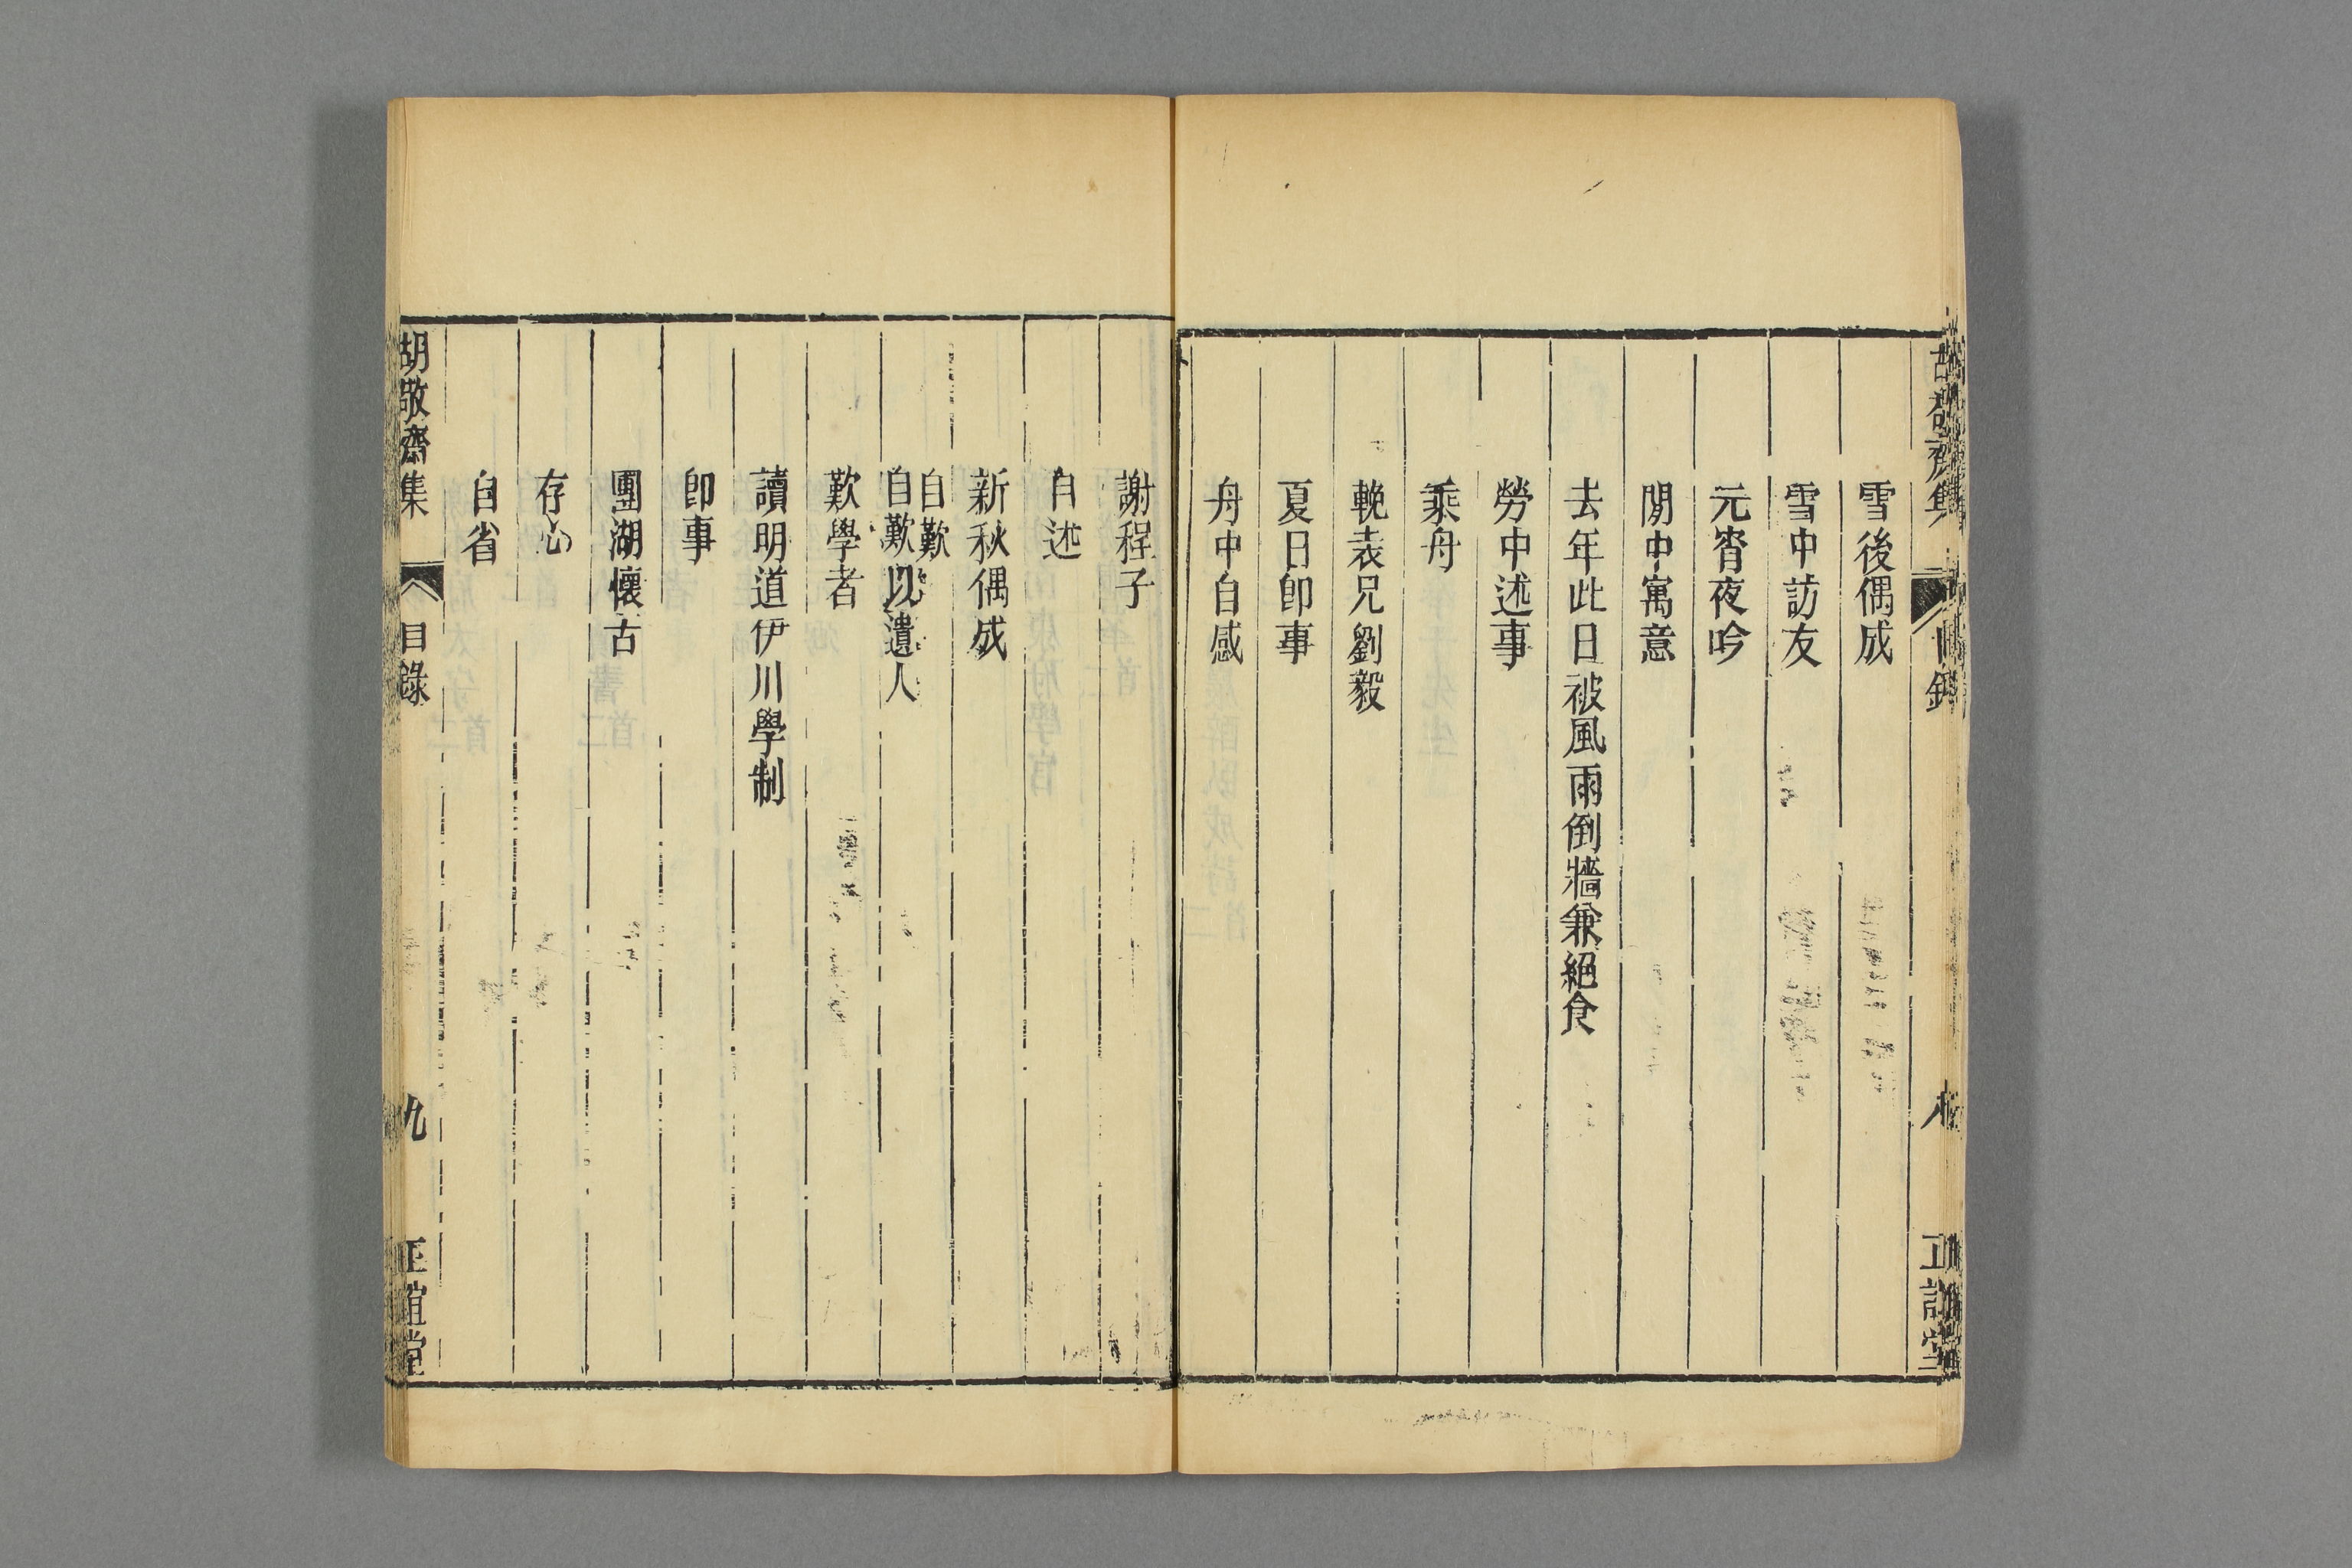 胡敬齋集 目錄 八 正誼堂
雪後偶成
雪中訪友
元宵夜吟
閒中寓意
去年此日被風雨倒牆兼絕食
勞中述事
乘舟
輓表兄劉毅
夏日卽事
舟中自感
謝程子
自述
新秋偶成
自歎
自歎以遺人
歎學者
讀明道伊川學制
卽事
團湖懷古
存心
自省
胡敬齋集 目錄 九 正誼堂